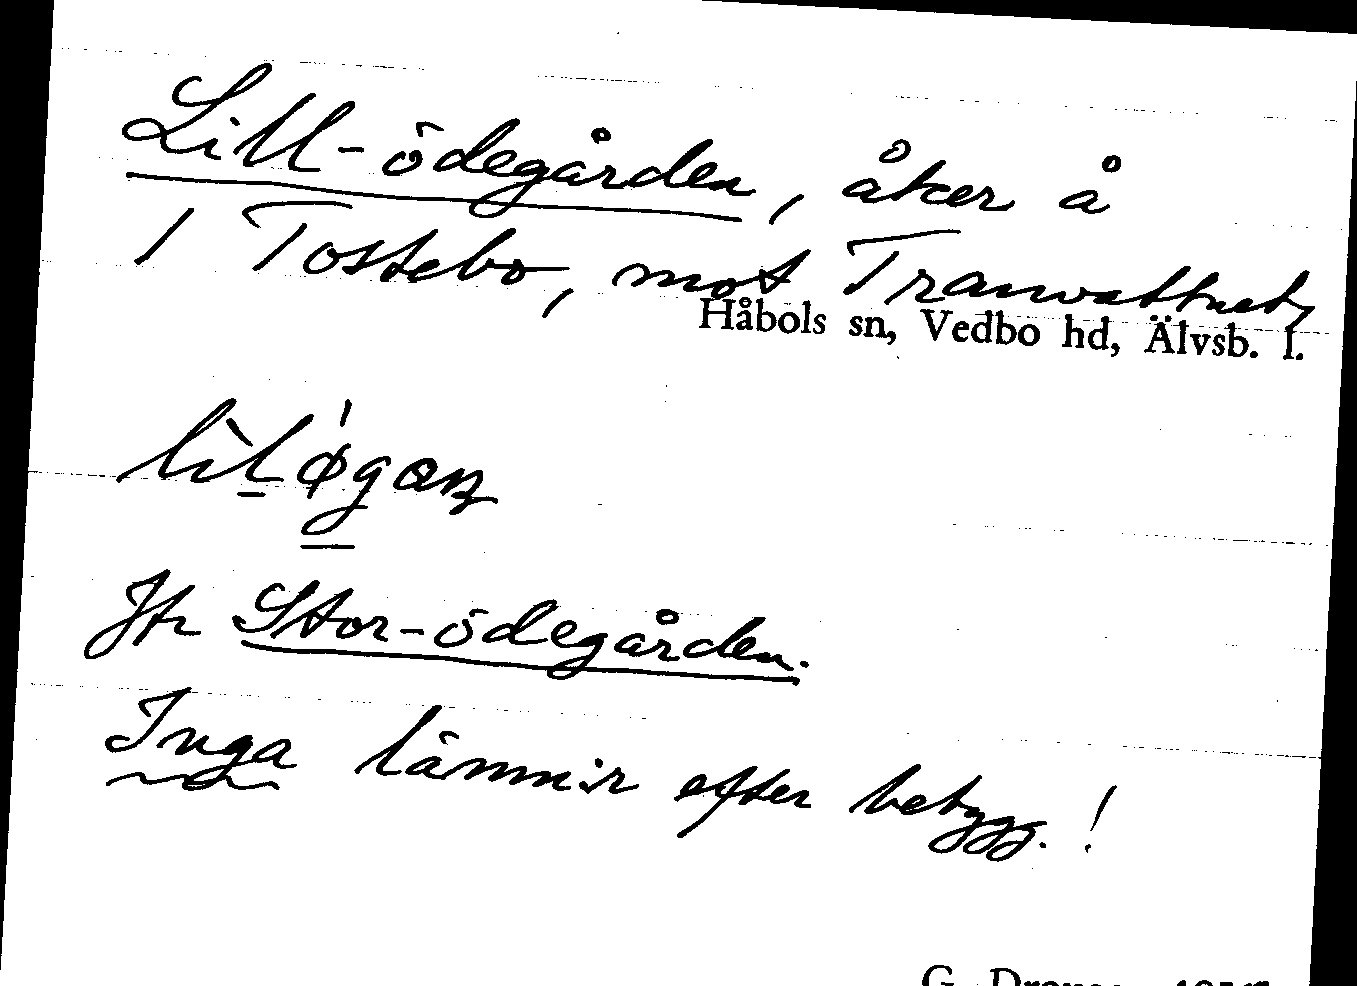 Lill-ödegården, åker å
1 Tostebo, mot Tranvattnet,
Håbols sn, Vedbo hd, Älvsb. l.
Jfr Stor-ödegården.
Inga lämnir efter bebygg.!
G.